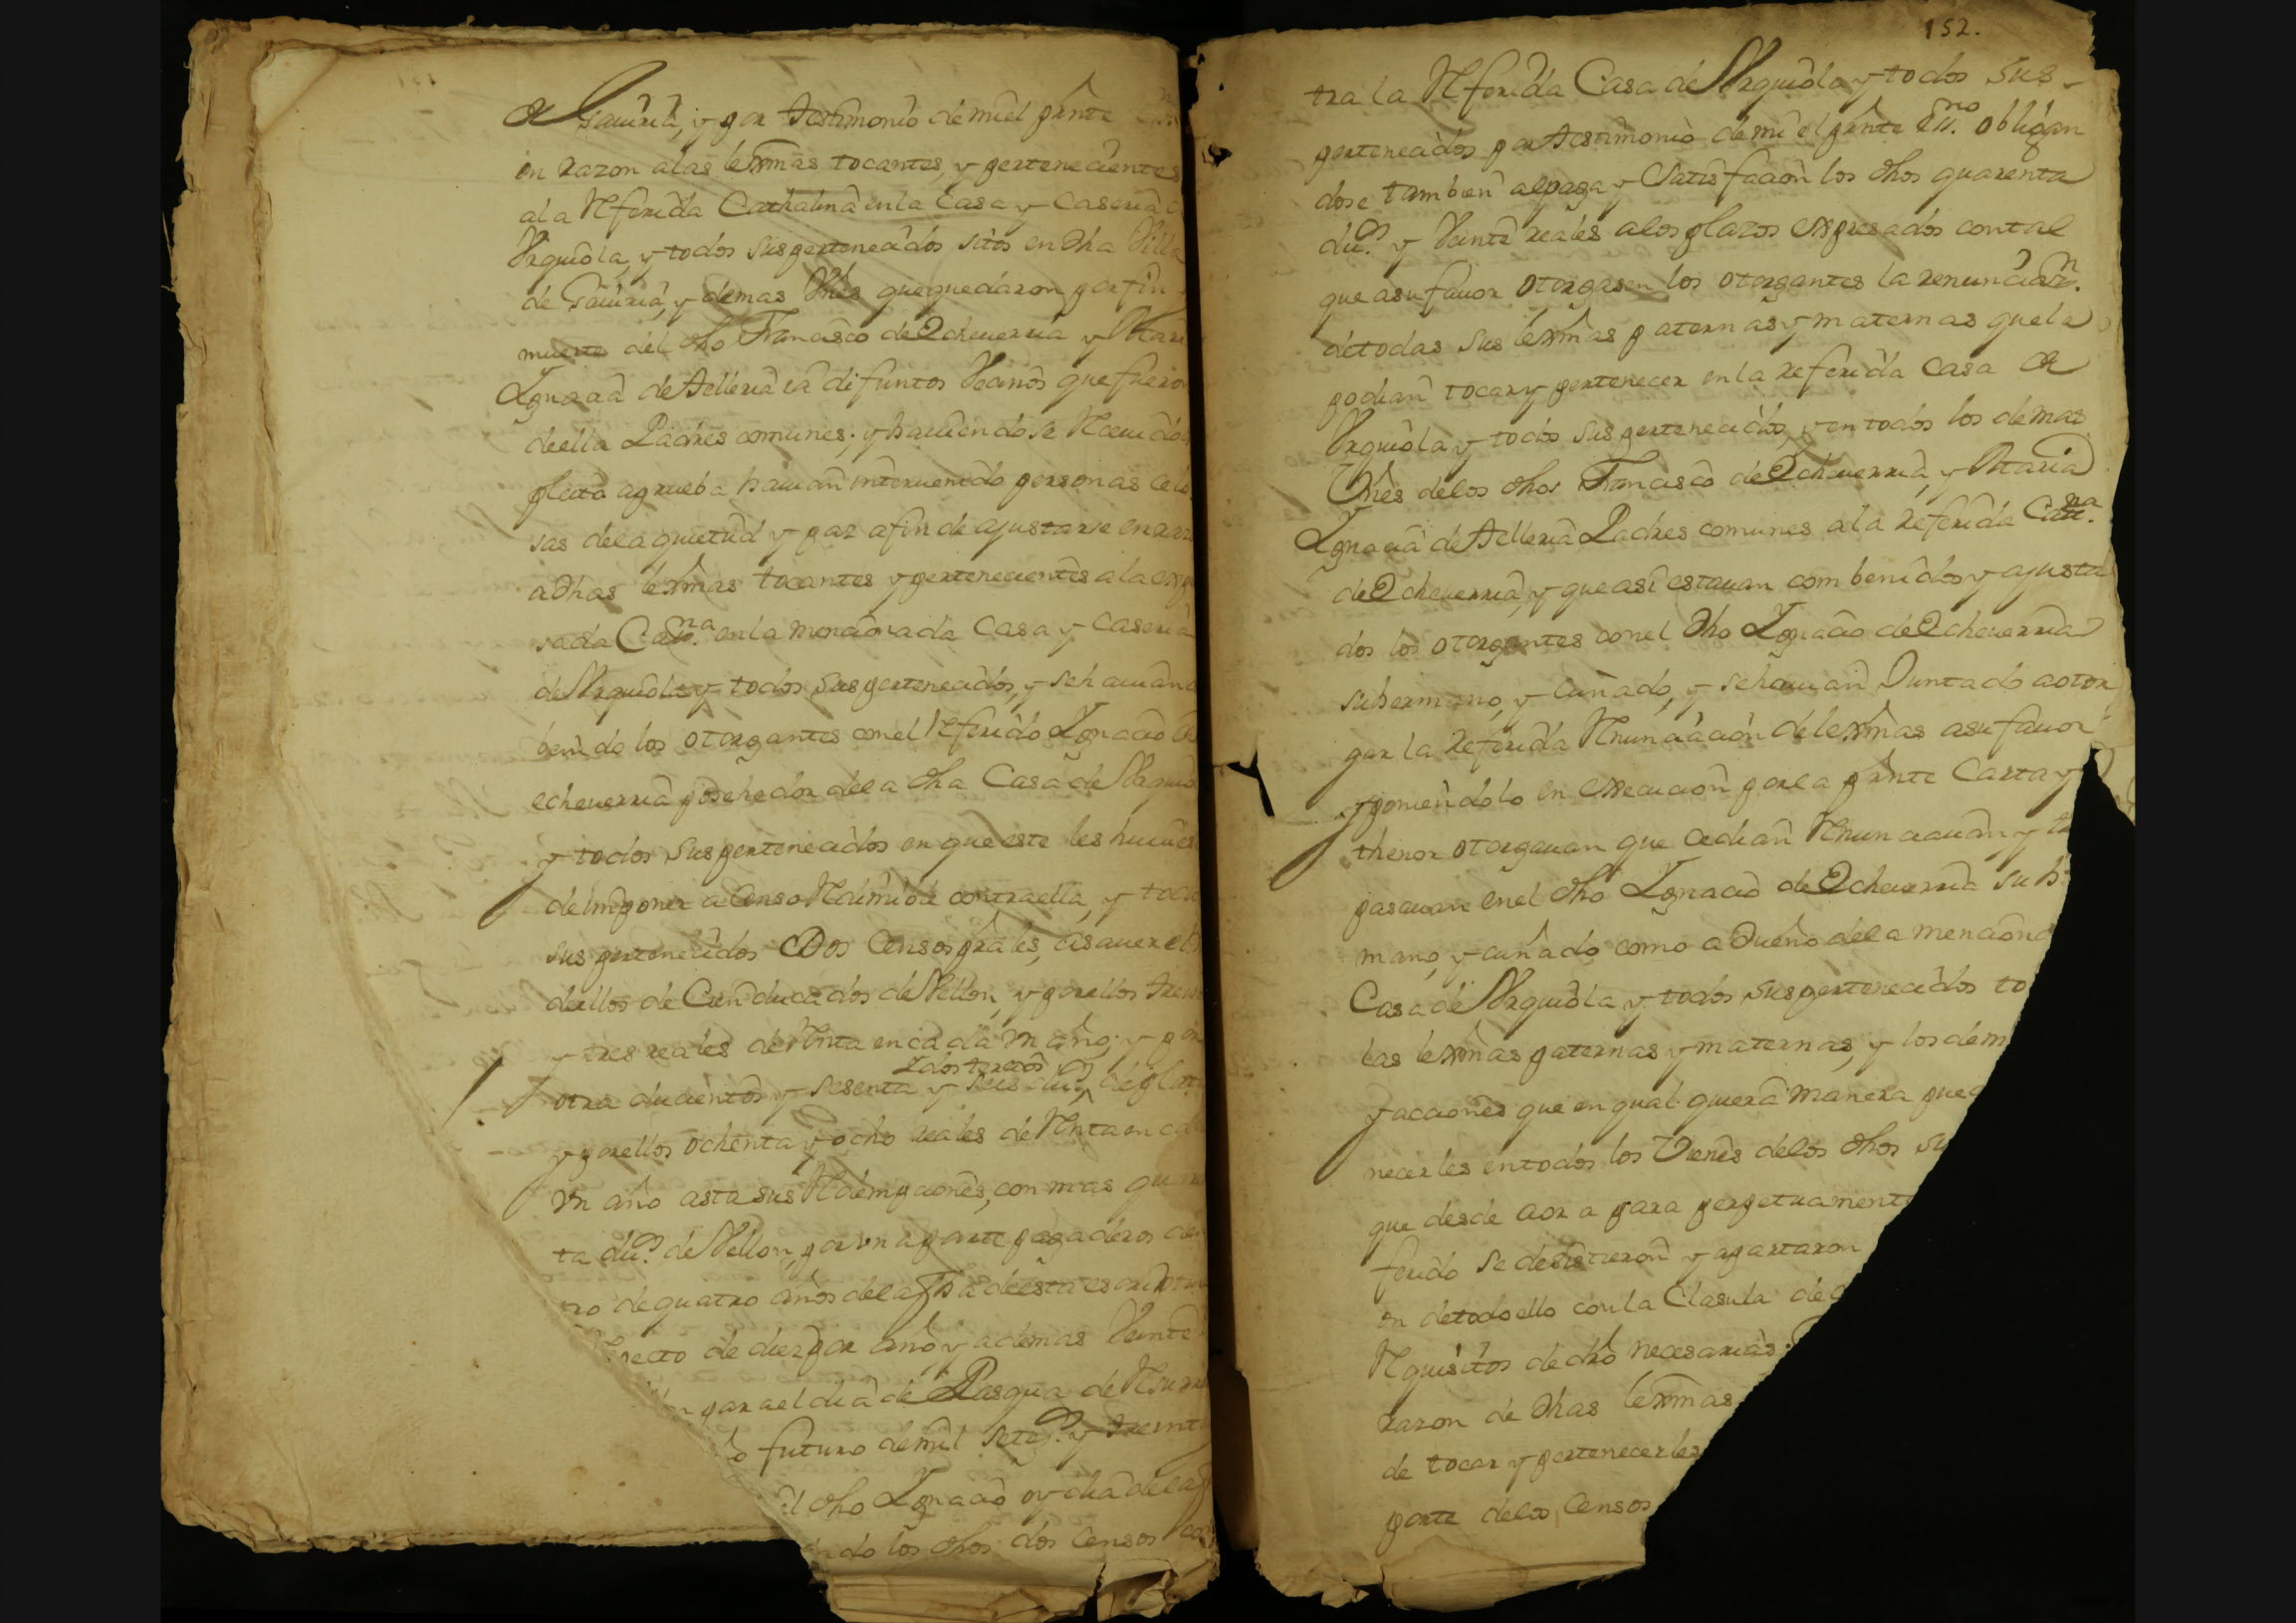 de Gauiria, y por testimonio de mi el prnte
en razon alas lexmas tocantes, y pertenecientes
ala Referida Cathalina en la Casa y Caseria
Vrquiola, y todos sus pertenecidos sitos en dha Villa
de Gauiria, y demas Vnes que quedaron por fin
muerte del dho Francisco de Echeuerria y Mari
Ygnacia de Telleria ia difuntos Vecinos que fueron
de ella Padres comunes; y hauiendose Receuido
pleito aprueba hauian interuenido personas celo
sas dela quietud y paz afin de ajustarse en razo
a dhas lexmas tocantes y pertenecientes ala expre
sada Catna. en la mencionada Casa y Caseria
de Vrquiola y todos sus pertenecidos, y se hauian
benido los otorgantes con el Referido Ygnacio de
echeuerria posehedor dela dha Casa de Vrquio
y todos sus pertenecidos en que este les huuies
de Imponer a Censo Redimible contra ella, y todos
sus pertenecidos Dos Censos prales, asauer el
dellos de Cien ducados de Vellon, y por ellos trein
y tres reales de Renta en cada vn año; y por
I dos tercios
otra ducientos y sesenta y seis dus. de plata
y por ellos ochenta y ocho reales de Renta en cada
vn año asta sus Redempciones, con mas quaren
ta dus. de Vellon, por vna parte pagaderos den
tro de quatro años dela fha de esta escriptura
Respecto de diez por año, y ademas Veinte
para el dia de Pasqua de Resurre
futuro de mil setes. y treinta
el dho Ygnacio oy dia dela f
endo los dhos dos Censos con
152.
tra la Referida Casa de Vrquiola y todos sus
pertenecidos por testimonio de mi el prnte Esno. obligan
dose tambien alpaga y Satisfacion los dhos quarenta
dus. y Veinte reales alos plazos expresados con tal
que asu fauor otorgasen los otorgantes la renunciaon.
de todas sus lexmas paternas y maternas que la
podian tocar y pertenecer en la referida Casa de
Vrquiola y todos sus pertenecidos, y en todos los demas
Vnes delos dhos Francisco de Echeuerria, y Maria
Ygnacia de Telleria Padres comunes ala referida Catna.
de Echeuerria, y que asi estauan combenidos y ajusta
dos los otorgantes con el dho Ygnacio de Echeuerria
su hermano, y cuñado, y se hauian Juntado aotor
gar la referida Renunciacion de lexmas asu fauor
y poniendolo en execucion por la prnte Carta y
thenor otorgauan que cedian Renunciauan y tras
pasauan en el dho Ygnacio de Echeuerria su her
mano, y cuñado como a Dueño dela menciona
Casa de Vrquiola y todos sus pertenecidos to
las lexmas paternas y maternas, y los dem
y acciones que en qual quiera manera pue
necerles en todos los Vienes delos dhos su
que desde aora para perpetuamente
ferido se desistieron y apartaron
en de todo ello con la Clasula de
Requisitos de dro necesarias.
razon de dhas lexmas
de tocar y pertenecerles
parte delos Censos